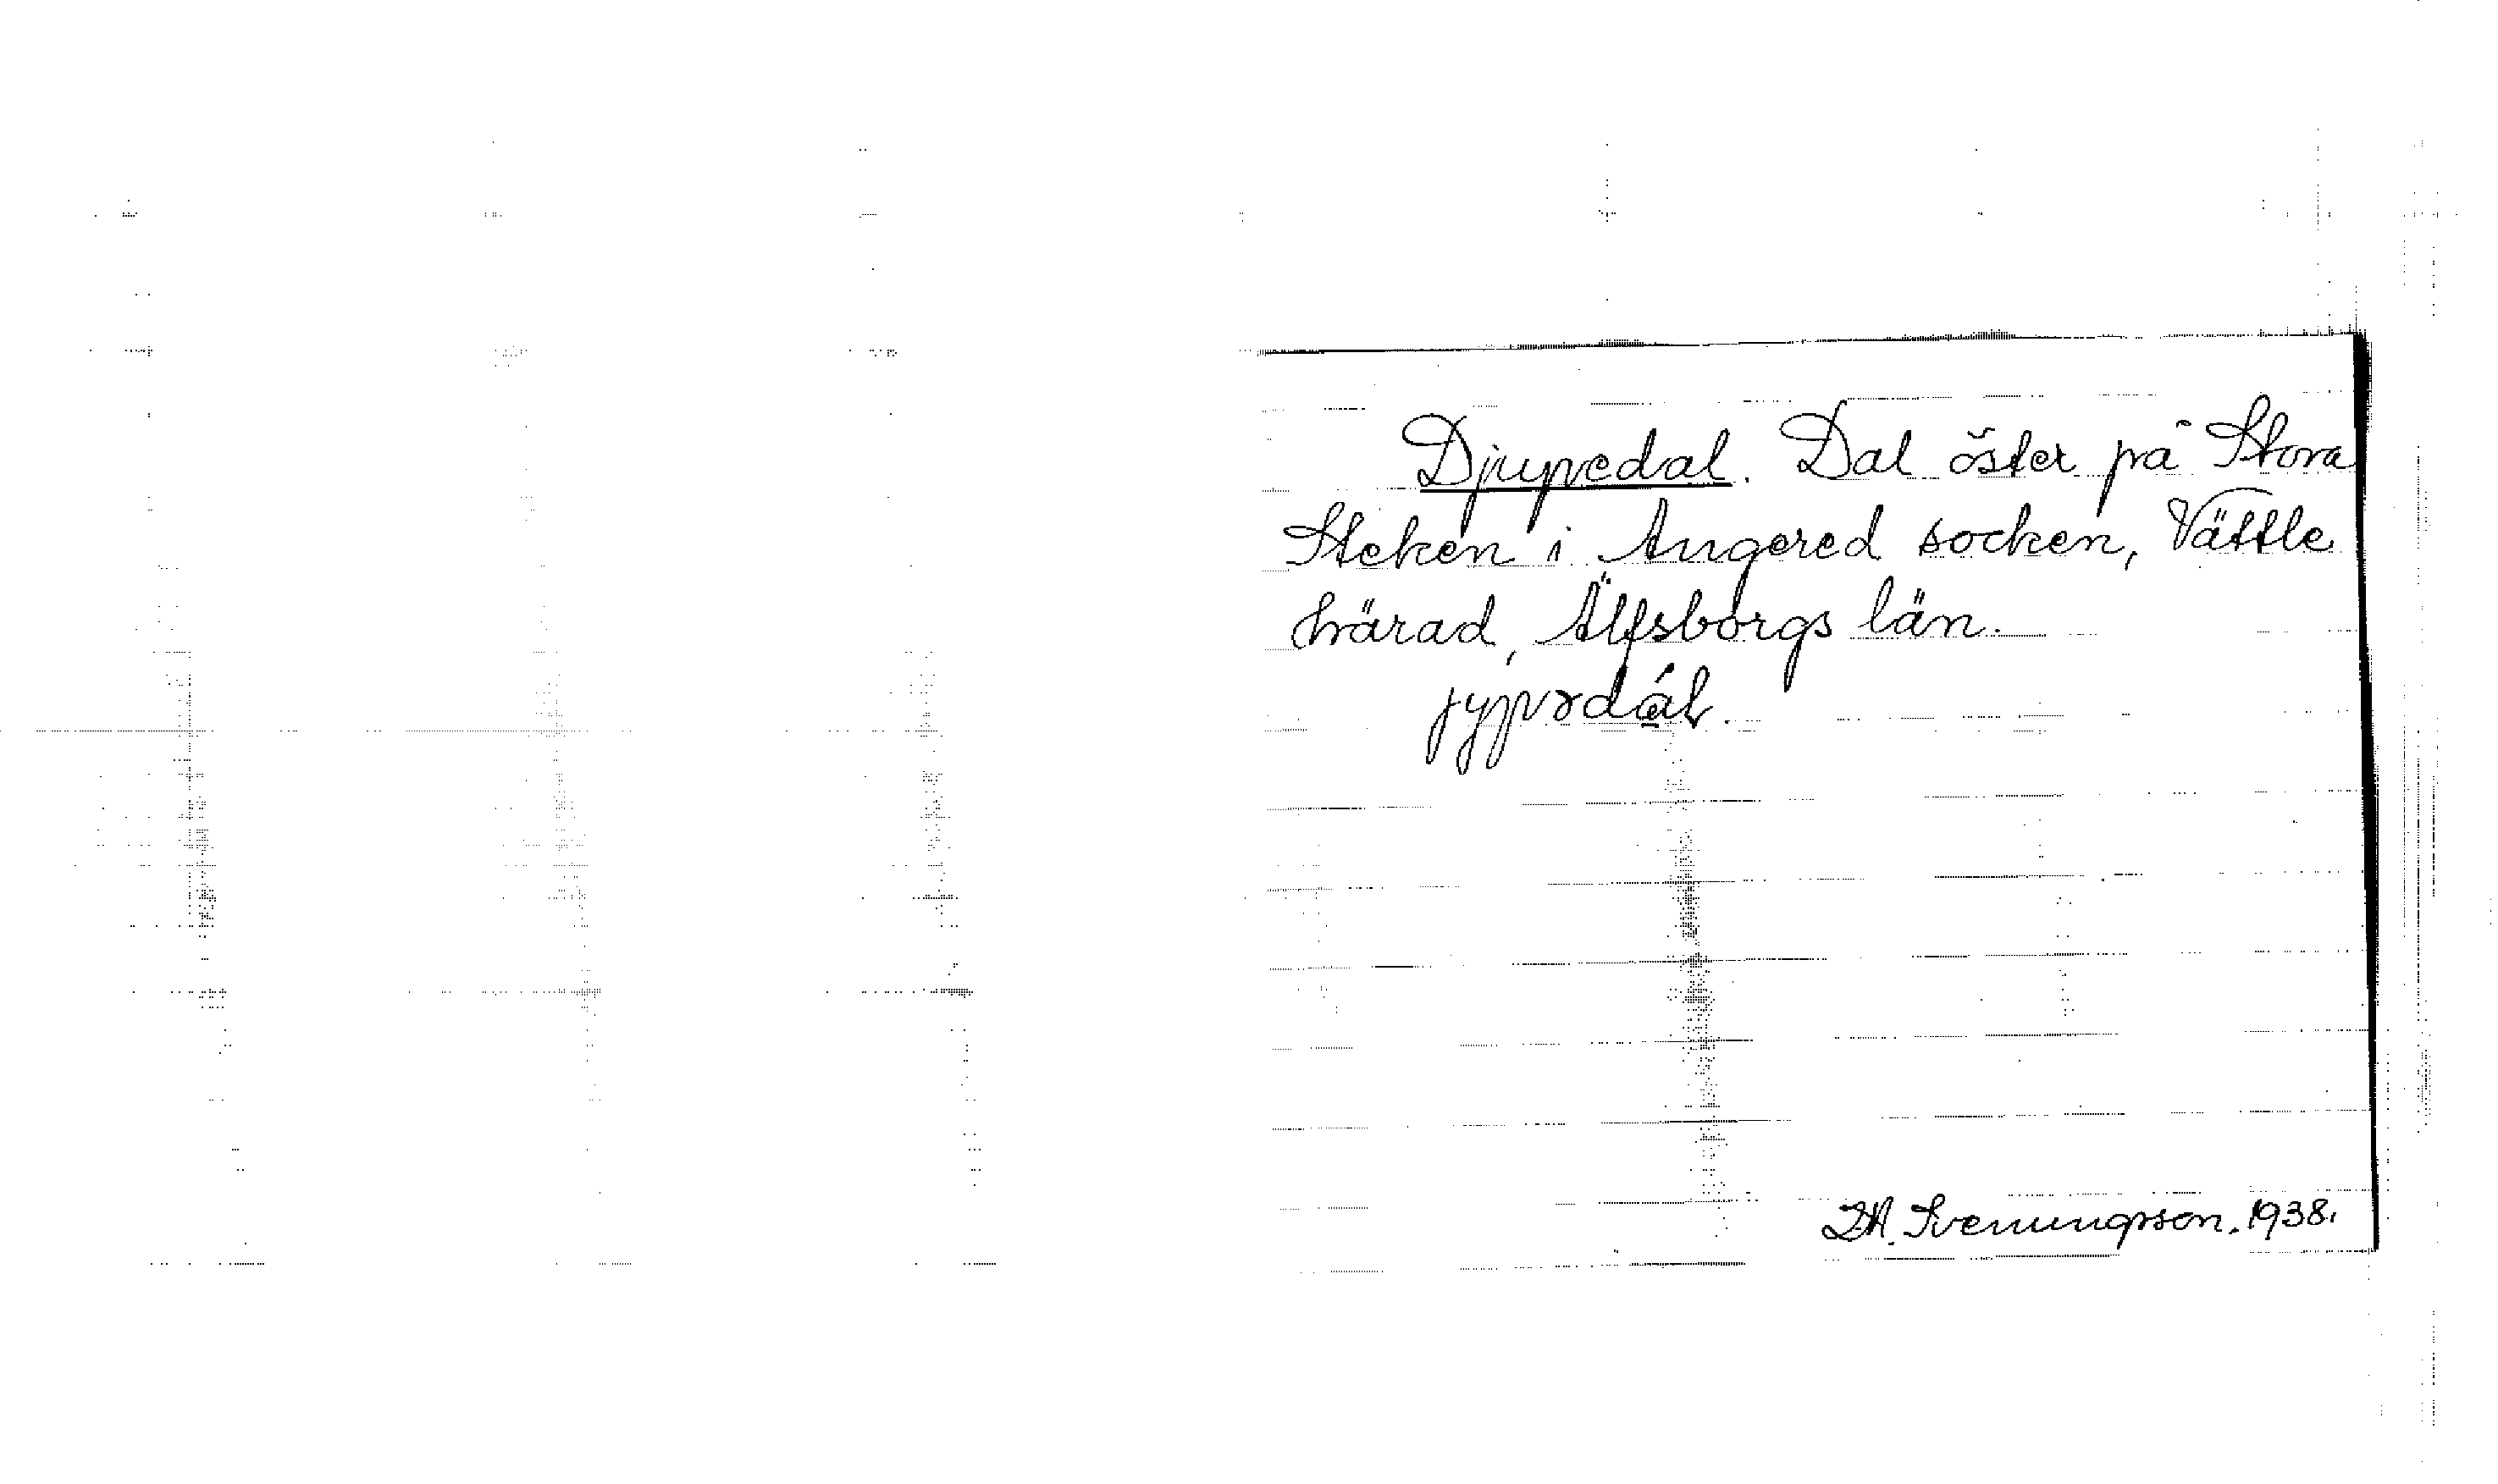 Djupedal. Dal öster på Stora
Steken i Angered socken, Vättle
härad, Älfsborgs län.
D.A. Svenungsson. 1938.